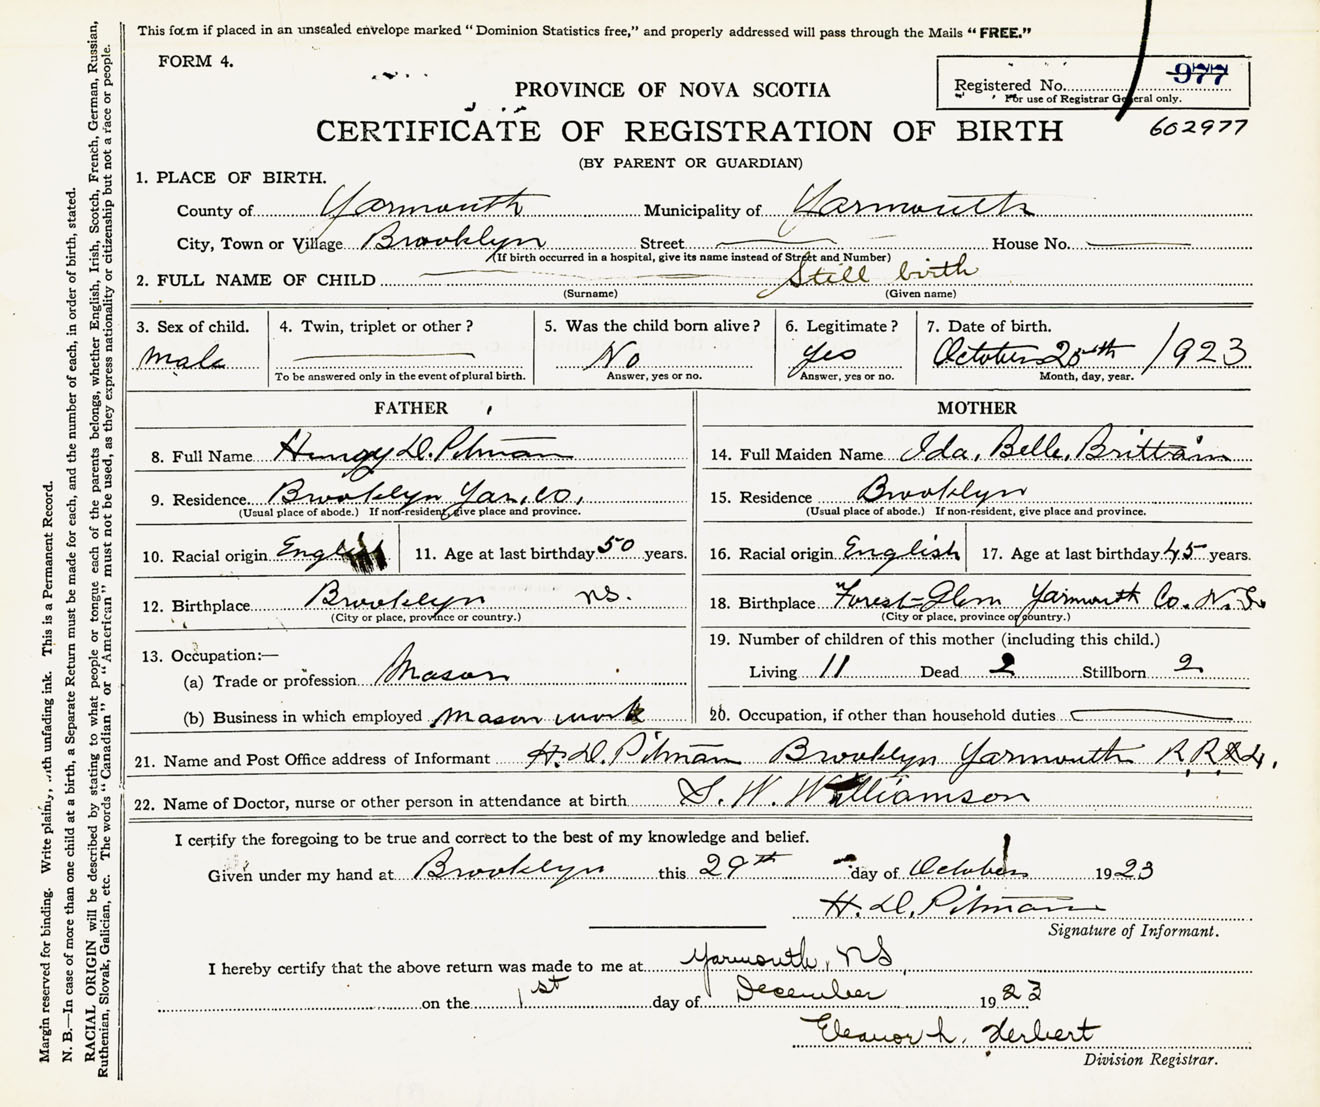 This form if placed in an unsealed envelope marked "Dominion Statistics free," and properly addressed will pass through the Mails "FREE."
FORM 4.
PROVINCE OF NOVA SCOTIA
Registered No. 977
For use of Registrar General only.
CERTIFICATE OF REGISTRATION OF BIRTH
602977
(BY PARENT OR GUARDIAN)
1. PLACE OF BIRTH.
County of Yarmouth Municipality of Yarmouth
City, Town or Village Brooklyn Street House No.
(If birth occurred in a hospital, give its name instead of Street and Number)
2. FULL NAME OF CHILD Still birth
(Surname) (Given name)
3. Sex of child. 4. Twin, triplet or other? 5. Was the child born alive? 6. Legitimate? 7. Date of birth.
Male No Yes October 1923
To be answered only in the event of plural birth. Answer, yes or no. Answer, yes or no. Month, day, year.
FATHER MOTHER
8. Full Name D. Pitman 14. Full Maiden Name Ida, Belle, Brittain
9. Residence Brooklyn Yar, Co, 15. Residence Brooklyn
(Usual place of abode.) If non-resident, give place and province. (Usual place of abode.) If non-resident, give place and province.
10. Racial origin English 11. Age at last birthday 50 years. 16. Racial origin English 17. Age at last birthday 45 years.
12. Birthplace Brooklyn NS. 18. Birthplace Forest-Glen Yarmouth Co. N.S.
(City or place, province or country.) (City or place, province or country.)
13. Occupation:— 19. Number of children of this mother (including this child.)
(a) Trade or profession Mason Living 11 Dead 2 Stillborn 2
(b) Business in which employed Mason work 20. Occupation, if other than household duties
21. Name and Post Office address of Informant H. D. Pitman Brooklyn Yarmouth R.R.
22. Name of Doctor, nurse or other person in attendance at birth S. W. Williamson
I certify the foregoing to be true and correct to the best of my knowledge and belief.
Given under my hand at Brooklyn this 29th day of October 1923
H. D. Pitman
Signature of Informant.
I hereby certify that the above return was made to me at Yarmouth, NS,
on the 1st day of December 1923
Eleanor L. Herbert
Division Registrar.
Margin reserved for binding. Write plainly, with unfading ink. This is a Permanent Record.
N. B.—In case of more than one child at a birth, a Separate Return must be made for each, and the number of each, in order of birth, stated.
RACIAL ORIGIN will be described by stating to what people or tongue each of the parents belongs, whether English, Irish, Scotch, French, German, Russian,
Ruthenian, Slovak, Galician, etc. The words "Canadian" or "American" must not be used, as they express nationality or citizenship but not a race or people.